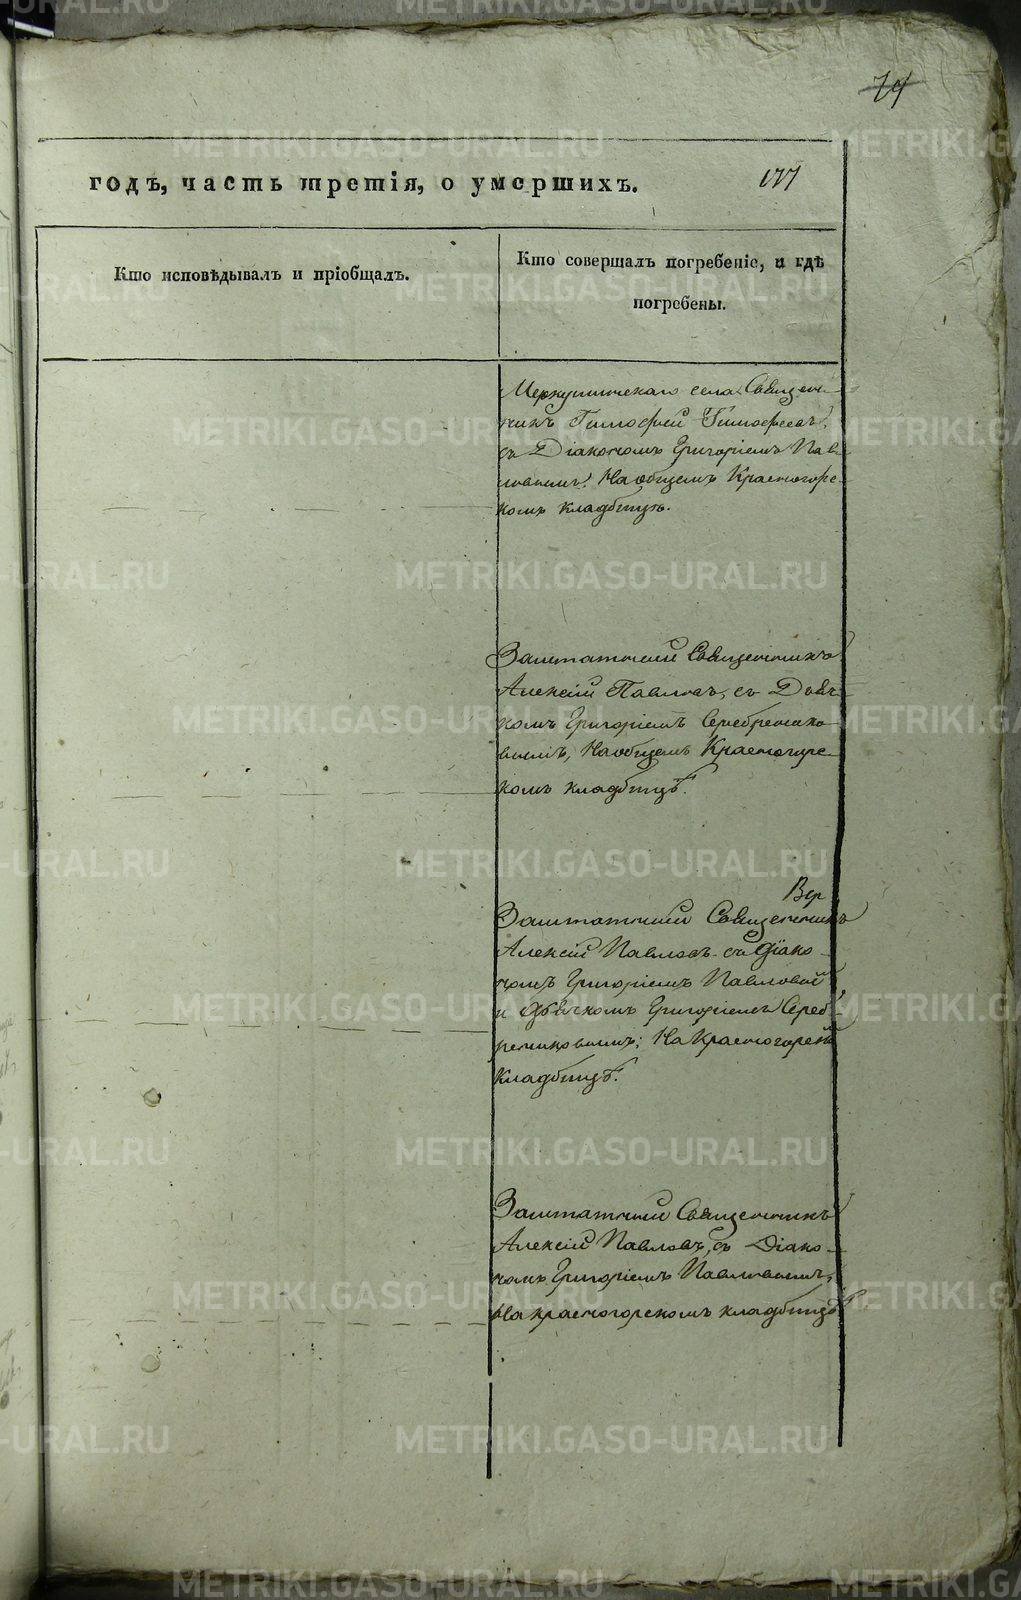 79
годъ, часть третія, о умершихъ.
177
Кто исповѣдывалъ и пріобщалъ.
Кто совершалъ погребеніе, и гдѣ
погребены.
Меркушинскаго села Священ-
никъ Тимофей Тимофеевъ,
съ Діакономъ Григоріемъ Пав-
ловымъ. На общемъ Красногорс-
комъ кладбищѣ.
Заштатный Священникъ
Алексій Павловъ, съ Дьяч-
комъ Григоріемъ Серебренико-
вымъ, На общемъ Красногорс-
комъ кладбищѣ.
Заштатный Священникъ
Алексій Павловъ съ Діако-
номъ Григоріемъ
и Дьячкомъ Григоріемъ Сереб-
рениковымъ; На Красногорск
кладбищѣ.
Заштатный Священникъ
Алексій Павловъ, съ Діако-
номъ Григоріемъ Павловымъ,
На красногорскомъ кладбищѣ
METRIKI.GASO-URAL.RU